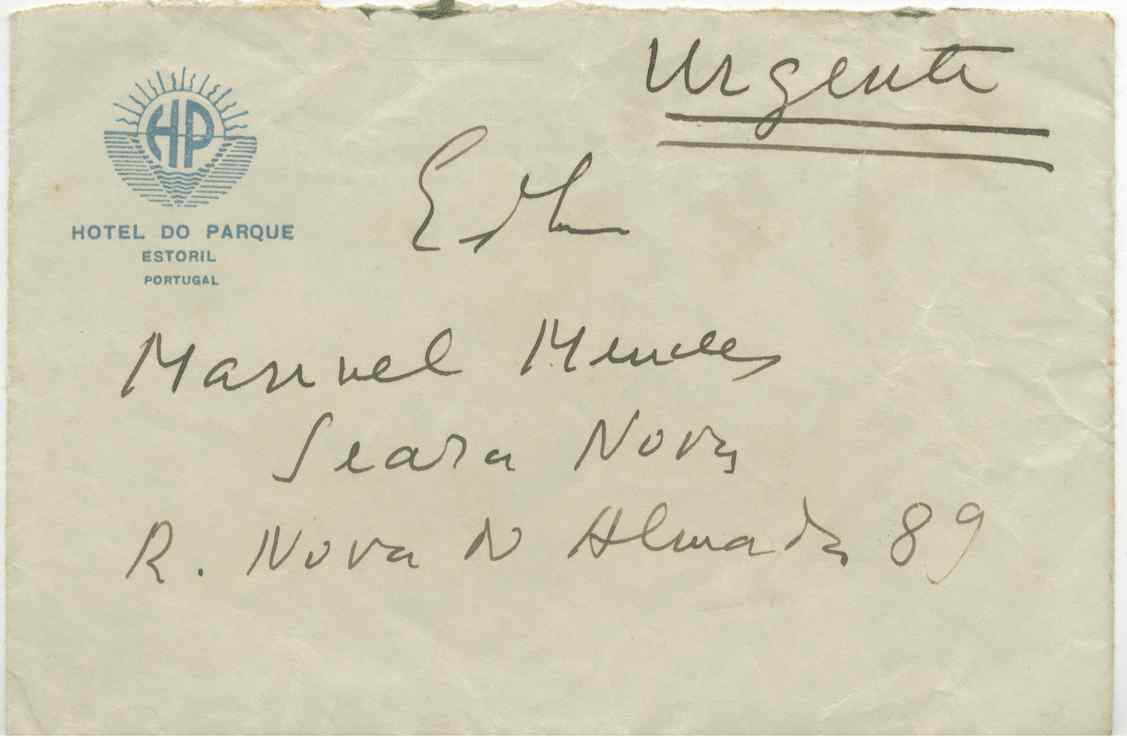 Urgente
HP
HOTEL DO PARQUE
ESTORIL
PORTUGAL
Manuel Mendes
Seara Nova
R. Nova do Almada 89